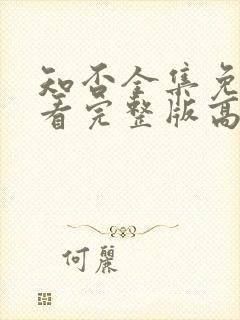 知否全集免
看完整版高
何麗